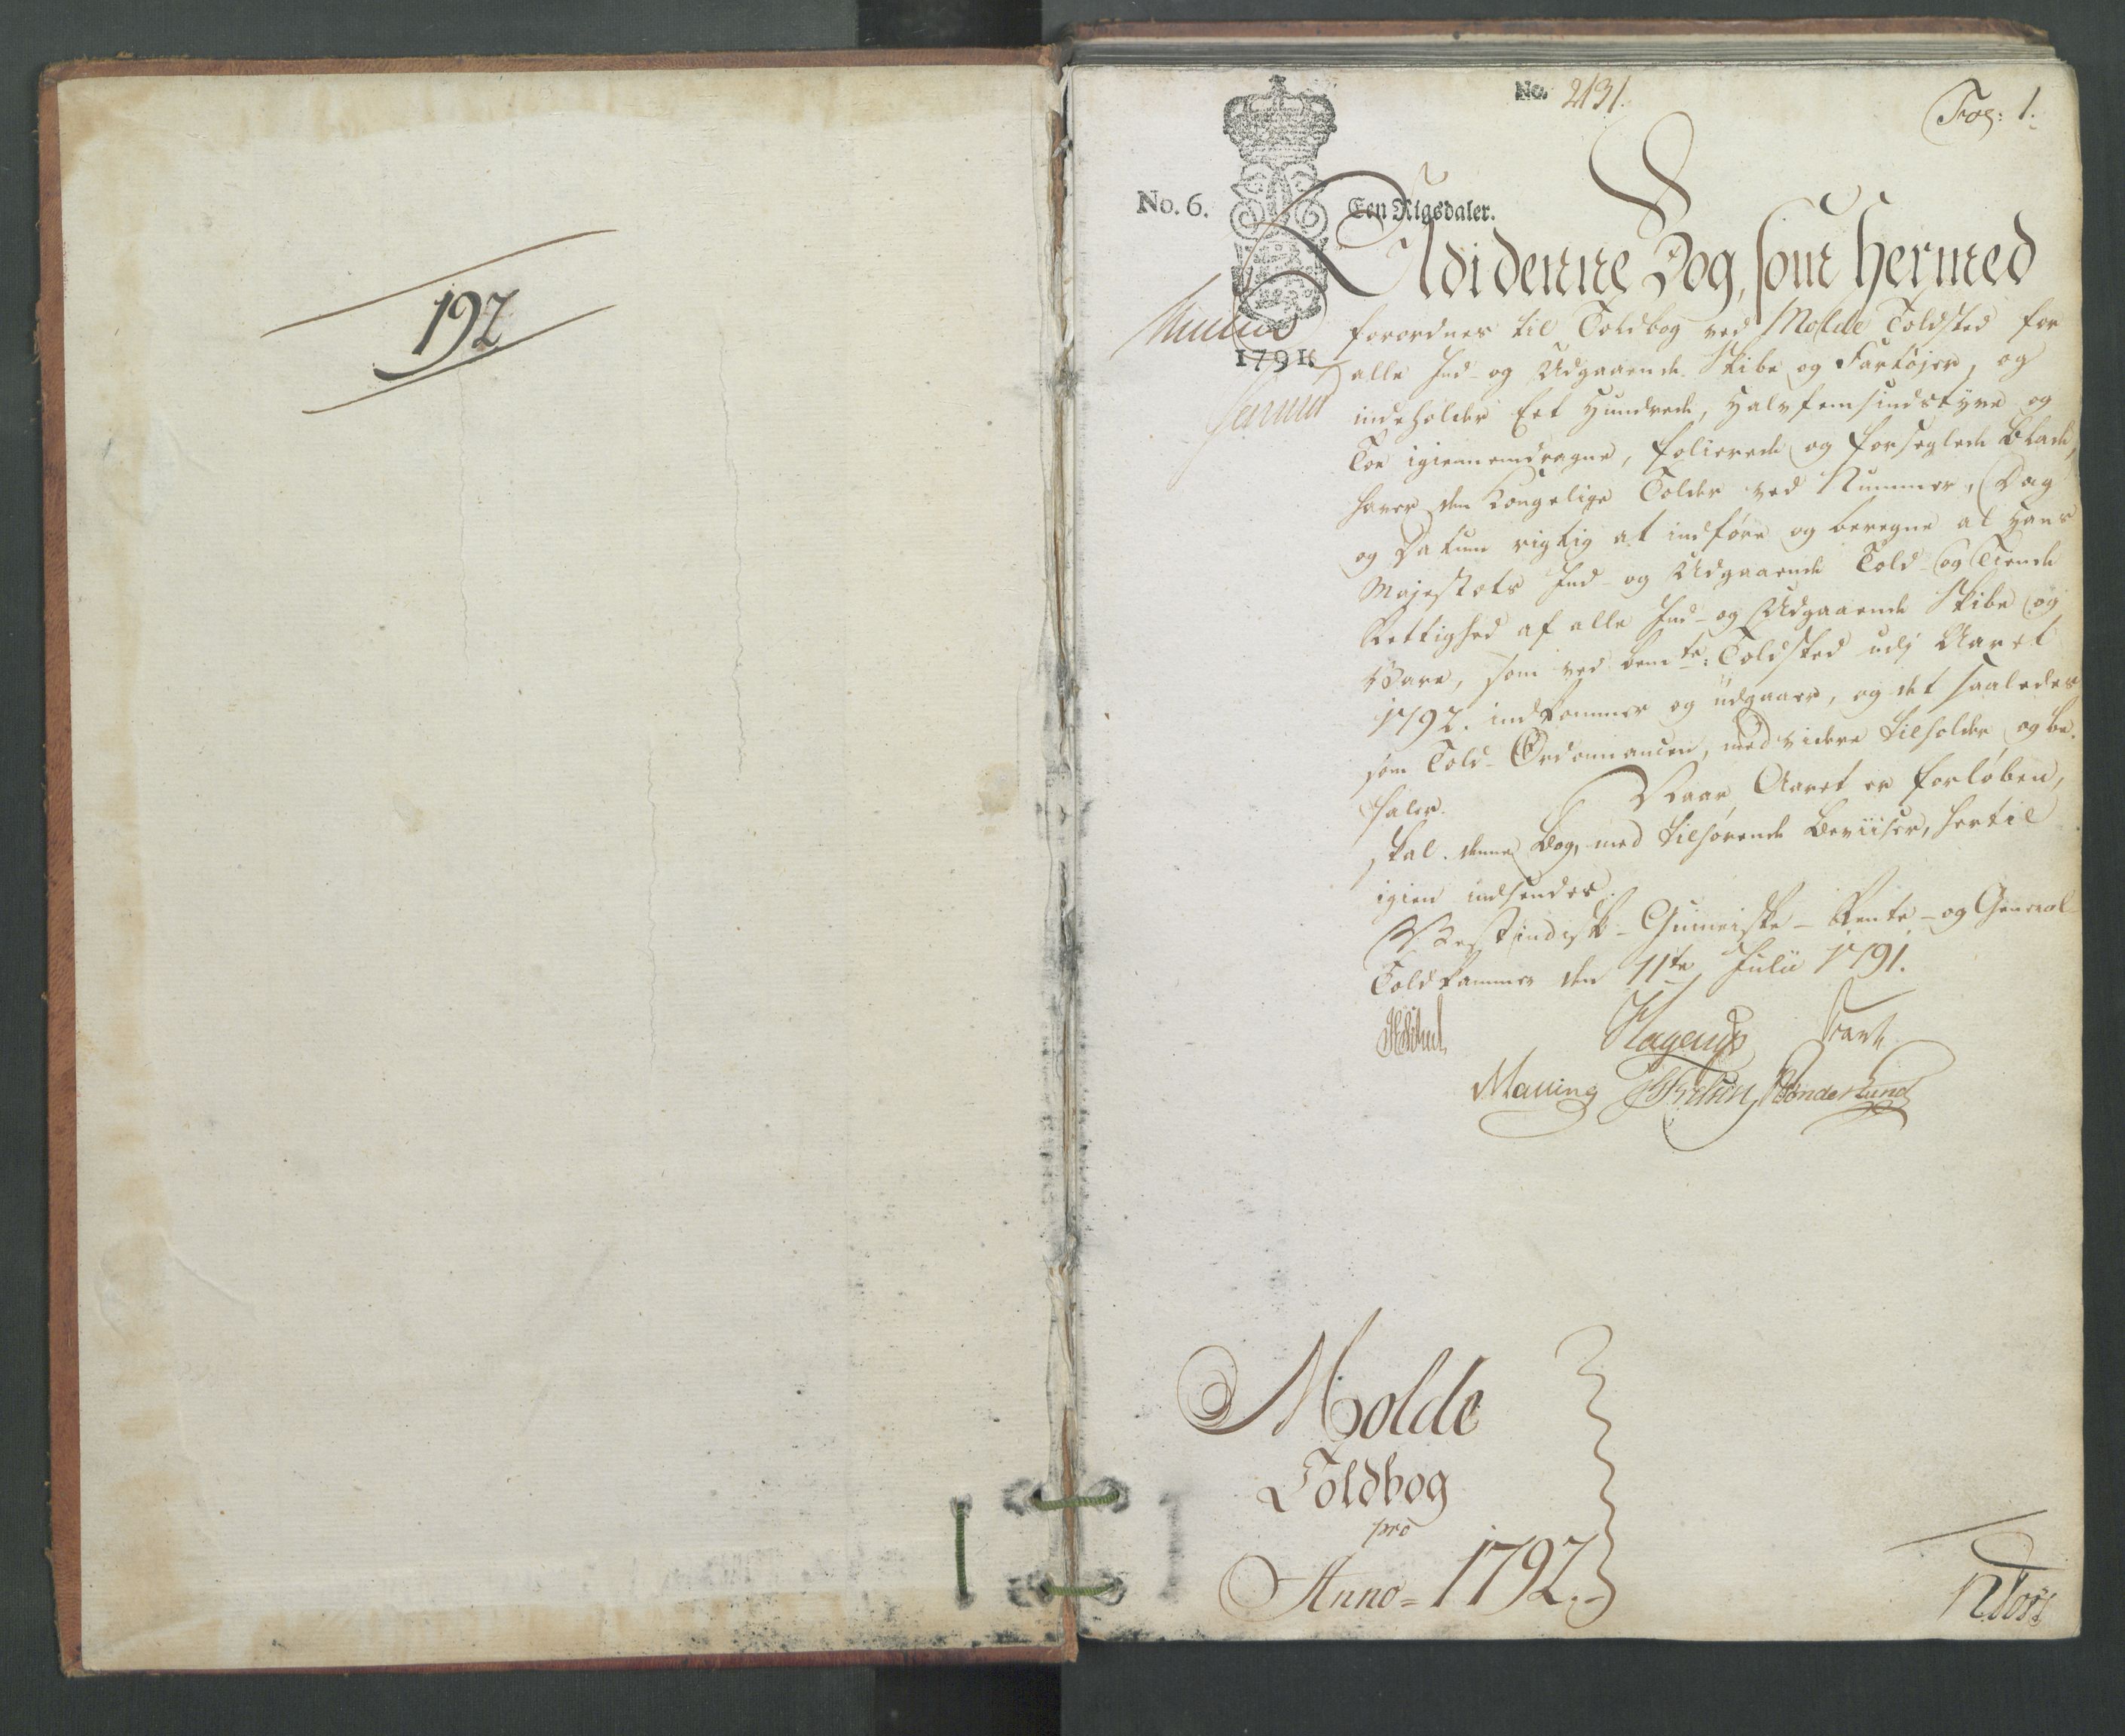 192
No. 2131.
Fog: 1.
No. 6.
Een Rigsdaler.
Udi denne Bog, som hermed
forordnes til Toldbog ved Molde Toldsted for
1791.
alle Ind- og Udgaaende Skibe og Fartøjer, og
indeholder Eet Hundrede, Halvfemsindstyve og
Toe igiennemdragne, folierede og forseglede Blade,
haver den Kongelige Tolder ved Nummer, Dag
og Datum rigtig at indføre og beregne al Hans
Majestæts Ind- og Udgaaende Told- og Tiende
Rettighed af alle Ind- og Udgaaende Skibe og
Vare, som ved bemte: Toldsted udj Aaret
1792. indkommer og udgaaer, og det saaledes
som Told-Ordonnancen, med videre tilholder og be-
faler. Naar Aaret er forløben,
skal denne Bog, med tilhørende Beviiser, hertil
igien indsendes.
Vestindisk-Guineiske- Rente- og General-
Toldkammer den 11te Julii 1791.
Hagerup
Malling Sønderlund
Molde
Toldbog
pro
Anno = 1792.